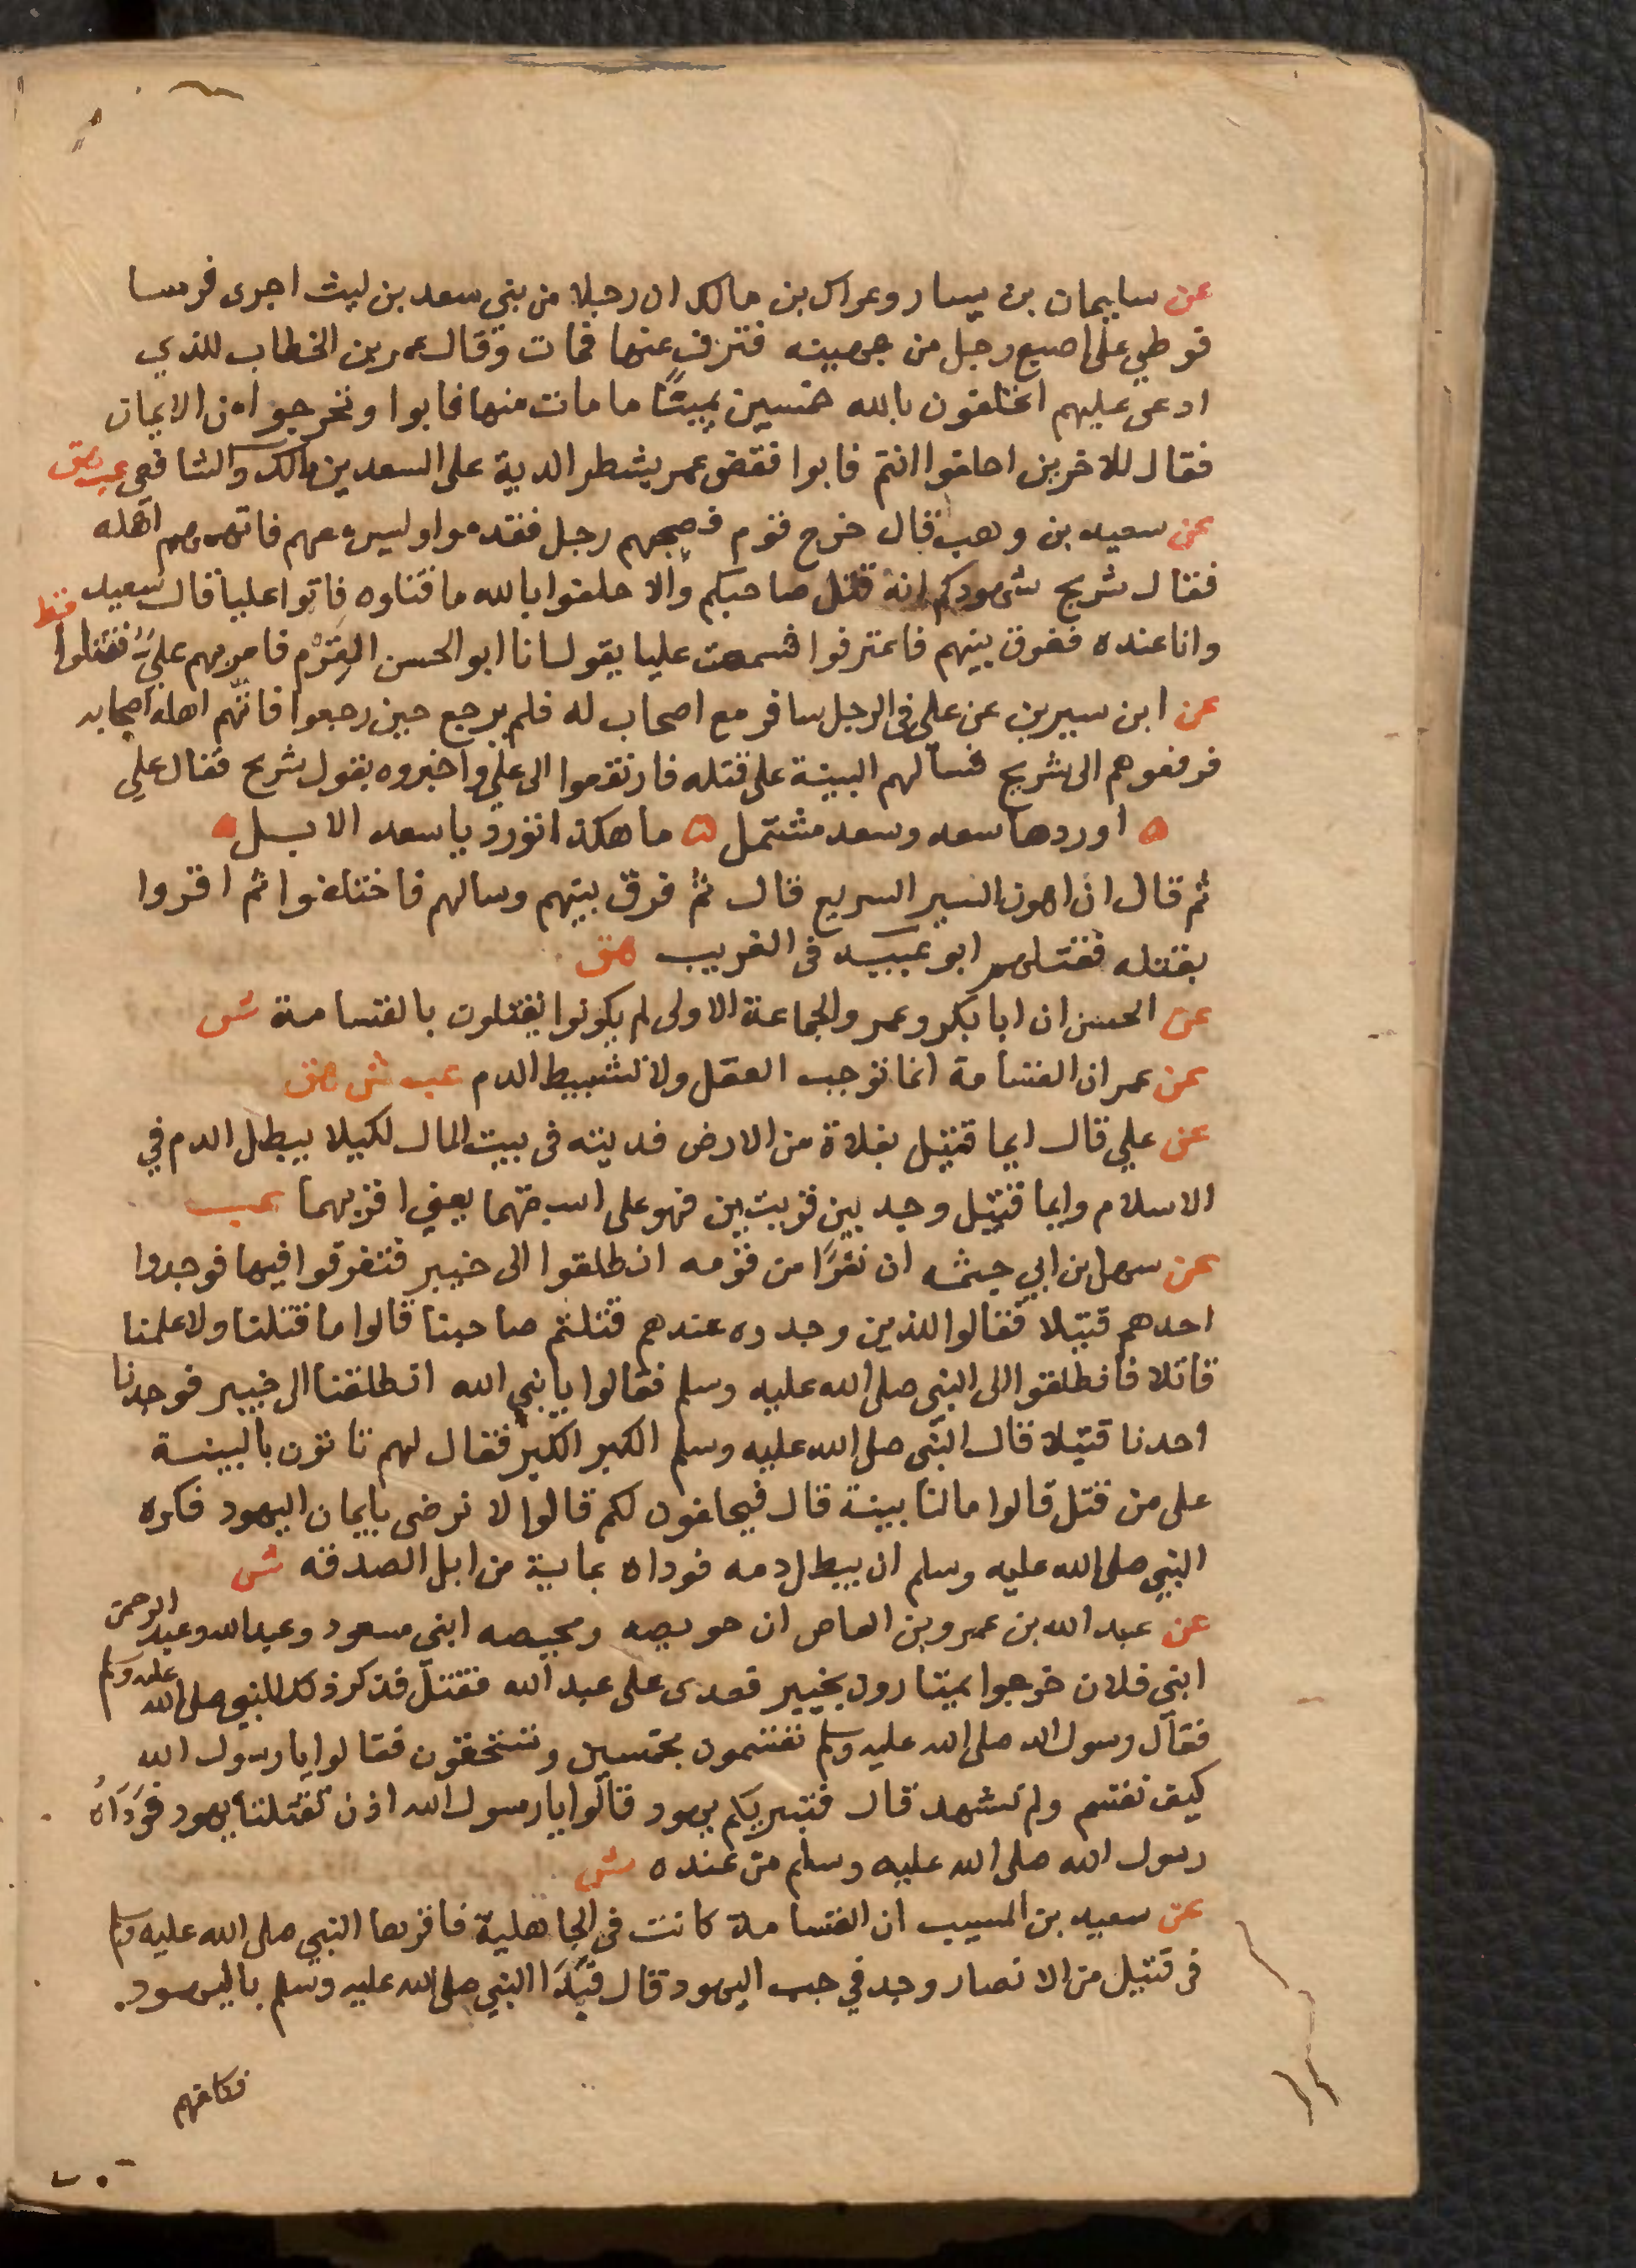 عن سليمان بن يسار وعراك بن مالك ان رجلا من بني سعد بن ليث اجرى فرسا
فوطي على اصبع رجل من جهينه فنزف عنها فمات وقال عمر بن الخطاب للذي
ادعى عليهم اتحلفون بالله خمسين يمينًا ما مات منها فابوا وتحرجوا من الايمان
فقال للاخرين احلفوا انتم فابوا فقضى عمر بشطر الدية على السعديين مالك والشافعي عب هق
عن سعيد بن وهب قال خرج قوم فصحبهم رجل فقدموا وليس معهم فاتهمهم اهله
فقال شريح شهودكم انه قتل صاحبكم والا حلفوا بالله ما قتلوه فاتوا عليا قال سعيد
وانا عنده ففرق بينهم فاعترفوا فسمعت عليا يقول انا ابو الحسن القرم فامر بهم علي فقتلوا قط
عن ابن سيرين عن علي في الرجل سافر مع اصحاب له فلم يرجع حين رجعوا فاتهم اهله اصحابه
فرفعوهم الى شريح فسألهم البينة على قتله فارتفعوا الى علي واخبروه بقول شريح فقال علي
ه اوردها سعد وسعد مشتمل ه ما هكذا تورد يا سعد الابل ه
ثم قال ان اهون السير السريع قال ثم فرق بينهم وسالهم فاختلفوا ثم اقروا
بقتله فقتلهم ابو عبيد في الغريب هق
عن الحسن ان ابا بكر وعمر والجماعة الاولى لم يكونوا يقتلون بالقسامة ش
عن عمر ان القسامة انما توجب العقل ولا تشيط الدم عب ش هق
عن علي قال ايما قتيل بفلاة من الارض فديته في بيت المال لكيلا يبطل الدم في
الاسلام وايما قتيل وجد بين قريتين فهو على اسبقهما يعني اقربهما عب
عن سهل بن ابي حيثمه ان نفرًا من قومه انطلقوا الى خيبر فتفرقوا فيها فوجدوا
احدهم قتيلا فقالوا للذين وجدوه عندهم قتلتم صاحبنا قالوا ما قتلنا ولا علمنا
قاتلا فانطلقوا الى النبي صلى الله عليه وسلم فقالوا يا نبي الله انطلقنا الى خيبر فوجدنا
احدنا قتيلا قال النبي صلى الله عليه وسلم الكبر الكبر فقال لهم تاتون بالبينة
على من قتل قالوا ما لنا بينة قال فيحلفون لكم قالوا لا نرضى بايمان اليهود فكره
النبي صلى الله عليه وسلم ان يبطل دمه فوداه بماية من ابل الصدقه ش
عن عبد الله بن عمرو بن العاص ان حويصه ومحيصه ابنى مسعود وعبد الله وعبد الرحمن
ابنى فلان خرجوا يمتارون بخيبر فعدى على عبد الله فقتل فذكر ذلك للنبي صلى الله عليه وسلم
فقال رسول الله صلى الله عليه وسلم تقسمون بخمسين وتستحقون فقالوا يا رسول الله
كيف نقسم ولم نشهد قال فتبريكم يهود قالوا يا رسول الله اذن تقتلنا يهود فوداه
رسول الله صلى الله عليه وسلم من عنده ش
عن سعيد بن المسيب ان القسامة كانت في الجاهلية فاقرها النبي صلى الله عليه وسلم
في قتيل من الانصار وجد في جب اليهود قال فبدا النبي صلى الله عليه وسلم باليهود
فكلفهم